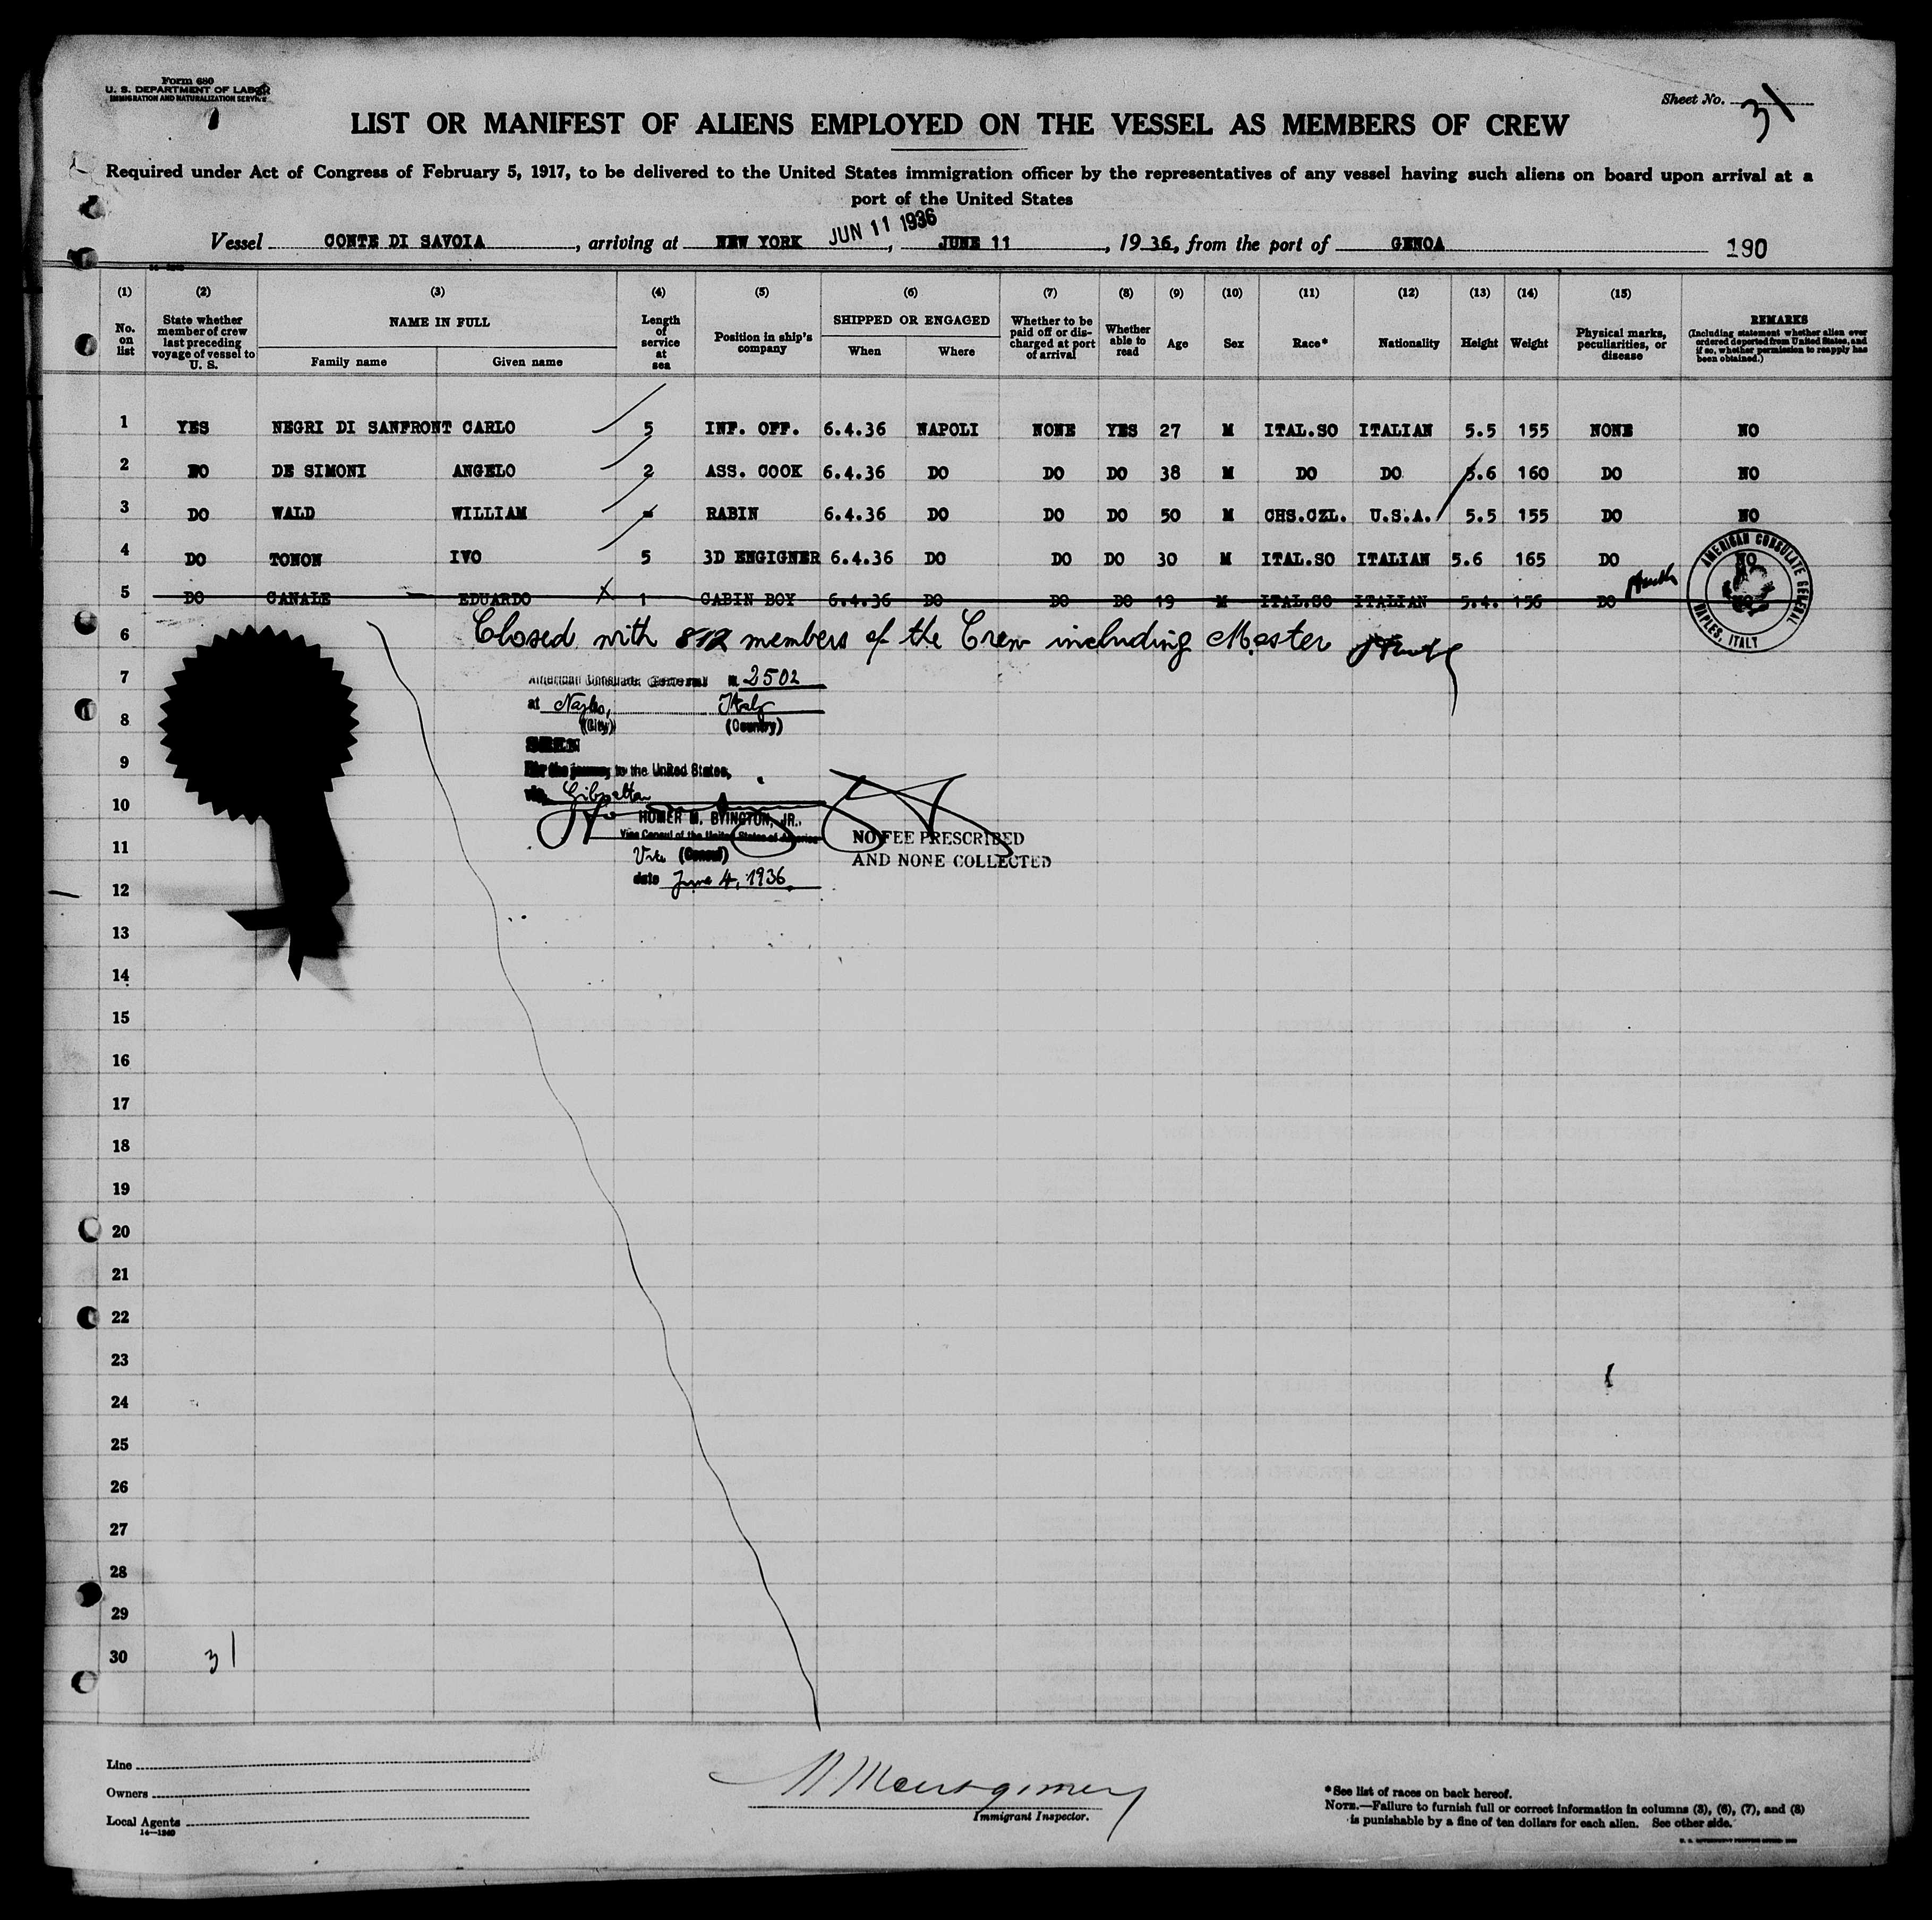 Form 680
U. S. DEPARTMENT OF LABOR
IMMIGRATION AND NATURALIZATION SERVICE
Sheet No. 31
LIST OR MANIFEST OF ALIENS EMPLOYED ON THE VESSEL AS MEMBERS OF CREW
Required under Act of Congress of February 5, 1917, to be delivered to the United States immigration officer by the representatives of any vessel having such aliens on board upon arrival at a
port of the United States
JUN 11 1936
Vessel CONTE DI SAVOIA, arriving at NEW YORK, JUNE 11, 19 36, from the port of GENOA 190
(1) (2) (3) (4) (5) (6) (7) (8) (9) (10) (11) (12) (13) (14) (15)
No. on list
State whether member of crew last preceding voyage of vessel to U. S.
NAME IN FULL
Family name
Given name
Length of service at sea
Position in ship's company
SHIPPED OR ENGAGED
When
Where
Whether to be paid off or discharged at port of arrival
Whether able to read
Age
Sex
Race*
Nationality
Height
Weight
Physical marks, peculiarities, or disease
REMARKS
(Including statement whether alien ever ordered deported from United States, and if so, whether permission to reapply has been obtained.)
1 YES NEGRI DI SANFRONT CARLO 5 INF. OFF. 6.4.36 NAPOLI NONE YES 27 M ITAL.SO ITALIAN 5.5 155 NONE NO
2 NO DE SIMONI ANGELO 2 ASS. COOK 6.4.36 DO DO DO 38 M DO DO 5.6 160 DO NO
3 DO WALD WILLIAM - RABIN 6.4.36 DO DO DO 50 M CHS.CZL. U.S.A. 5.5 155 DO NO
4 DO TONON IVO 5 3D ENGIGNER 6.4.36 DO DO DO 30 M ITAL.SO ITALIAN 5.6 165 DO NO
5 DO CANALE EDUARDO 1 CABIN BOY 6.4.36 DO DO DO 19 M ITAL.SO ITALIAN 5.4. 156 DO
AMERICAN CONSULATE GENERAL
NAPLES, ITALY
6 Closed with 812 members of the Crew including Master
7 American Consulate General 2502
at Naples, Italy
8 (City) (Country)
SEEN
9 For the journey to the United States,
10 via Gibraltar
HOMER M. BYINGTON, JR.
Vice Consul of the United States of America
11 Vice (Consul)
NO FEE PRESCRIBED
AND NONE COLLECTED
date June 4, 1936
12
13
14
15
16
17
18
19
20
21
22
23
24
25
26
27
28
29
30 31
Line
Owners
Local Agents
14—1240
Montgomery
Immigrant Inspector.
*See list of races on back hereof.
NOTE.—Failure to furnish full or correct information in columns (3), (6), (7), and (8)
is punishable by a fine of ten dollars for each alien. See other side.